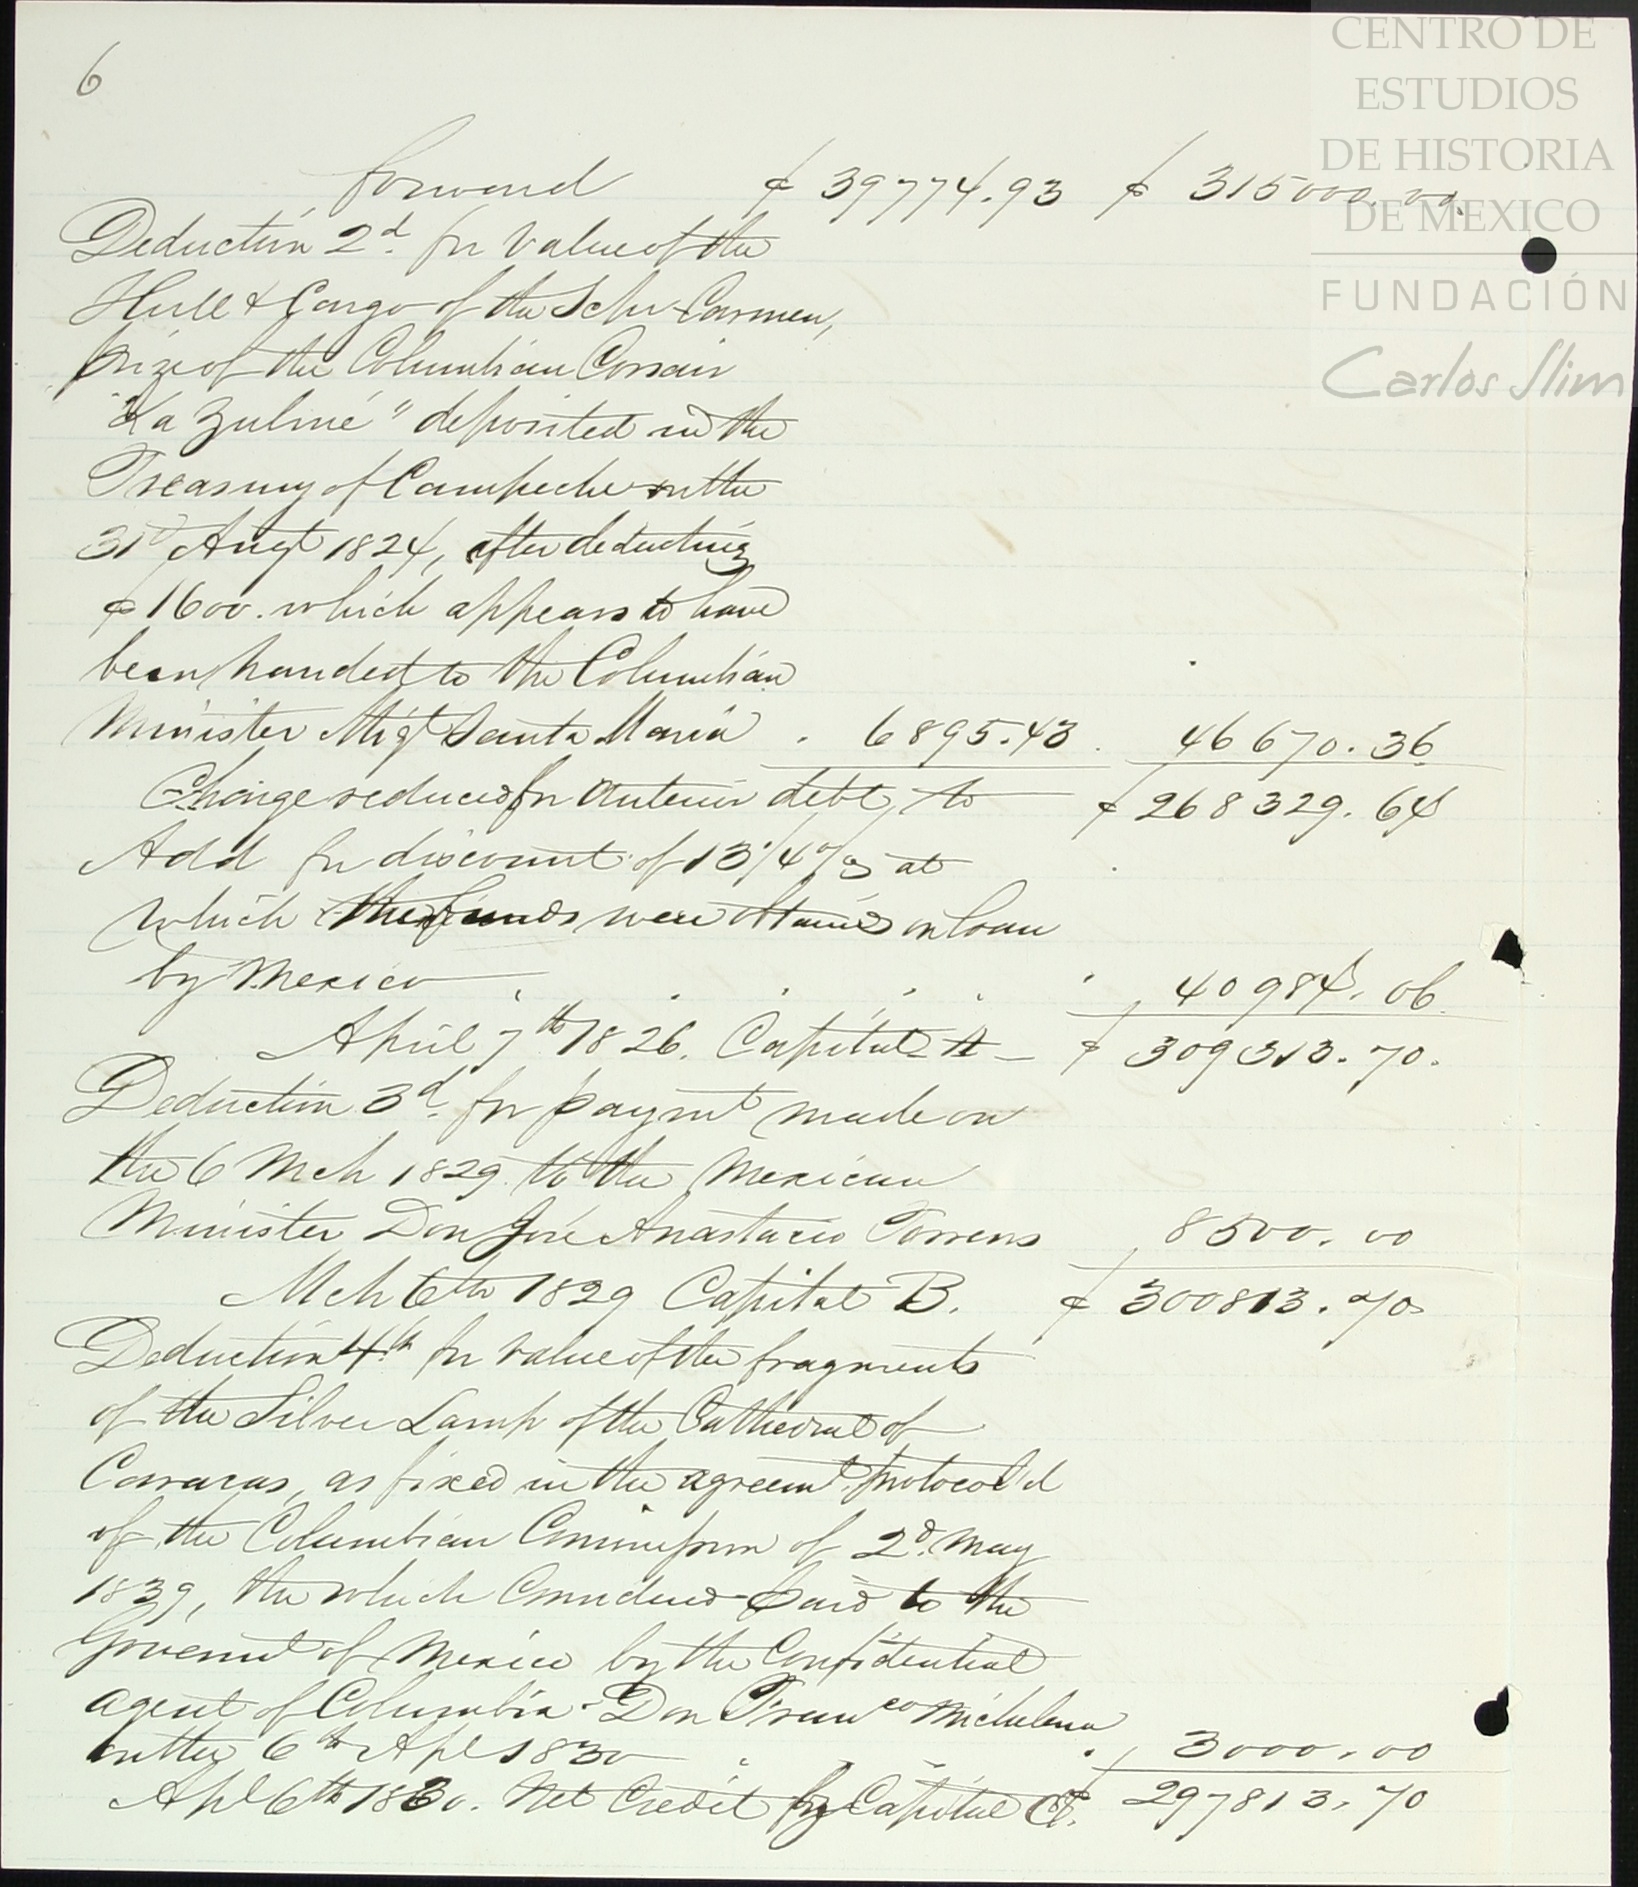 6
CENTRO DE
ESTUDIOS
DE HISTORIA
DE MEXICO
FUNDACIÓN
Carlos Slim
forward $ 39774.93 $ 315000.00.
Deduction 2d. for value of the
Hull & Cargo of the Schr Carmen,
prize of the Columbian Corsair
"La Zulmé" deposited in the
Treasury of Campeche on the
31st Augt 1824, after deducting
$1600. which appears to have
been handed to the Columbian
Minister Migl Santa Maria . 6895.43. 46670.36
Charge reduced for anterior debt, to $ 268329.64
Add for discount of 13 1/4 % at
which the funds were obtained on loan
by Mexico . . . . . . 40984.06
April 7th 1826. Capital A — $ 309313.70.
Deduction 3d. for paymt made on
the 6 Mch 1829. to the Mexican
Minister Don José Anastacio Torrens 8500.00
Mch 6th 1829 Capital B. $ 300813.70
Deduction 4th for value of the fragments
of the Silver Lamp of the Cathedral of
Carracas, as fixed in the agreemt. protocol'd
of the Columbian Commission of 2d. May
1839, the which Considered paid to the
Governmt of Mexico by the Confidential
agent of Columbia - Don Franco Michelena
on the 6th Apl 1830 . . . 3000.00
Apl 6th 1830. Net Credit by Capital C. $ 297813.70